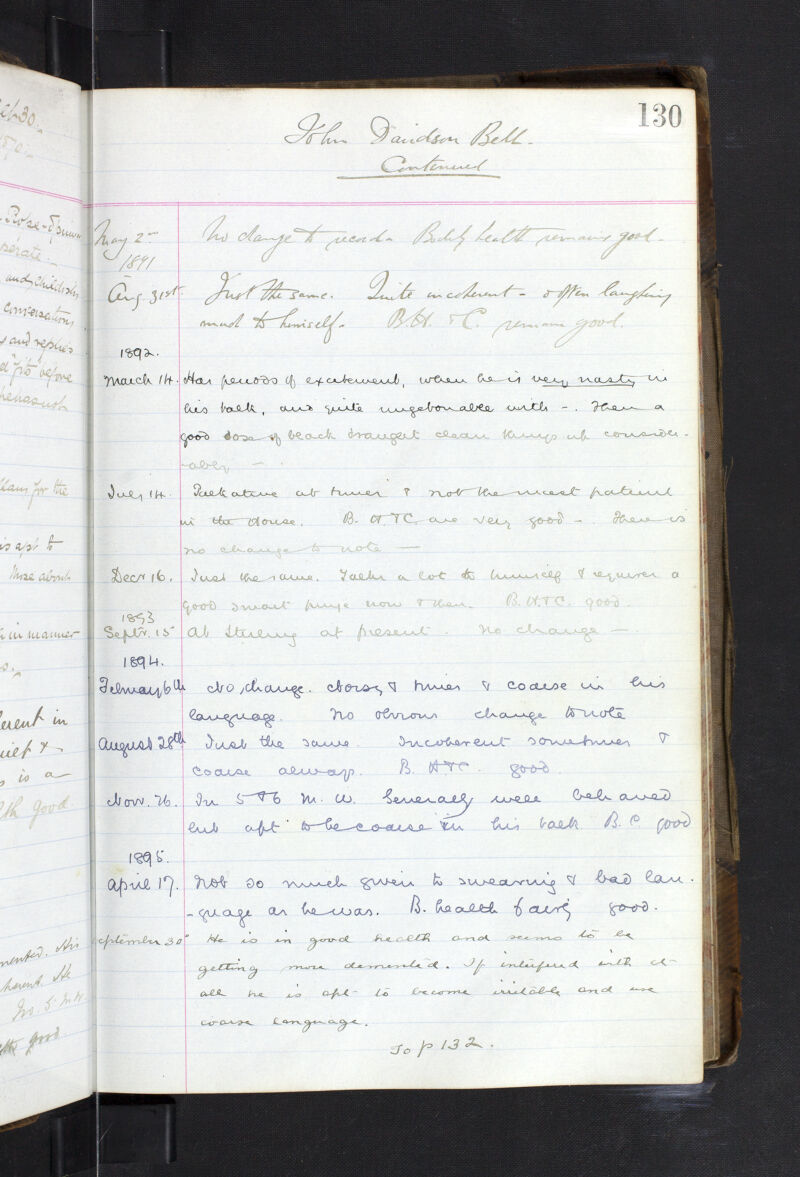 130
John Davidson Bell.
Continued
May 2nd
1891
No change to record. Bodily health remains good.
Aug. 31st
Just the same. Quite incoherent - often laughing
much to himself. B.H. & C. remain good.
1892.
March 14. Has periods of excitement, when he is very nasty in
his talk, and quite ungetonable with -. Then a
good dose of black draught clears things up consider-
ably -
July 14. Talkative at times & not the nicest patient
in the House. B. H & C. are very good -. There is
no change to note -
Decr 16. Just the same. Talks a lot to himself & requires a
good smart purge now & then. B.H. & C. good.
1893
Septr. 15 At Sterling at present. No change -.
1894.
February 6th No change. Noisy & times & coarse in his
language. No obvious change to note
August 28th Just the same. Incoherent sometimes &
coarse always. B. H & C. good.
Nov. 26. In 5 & 6 M. W. Generally well behaved
but apt to be coarse in his talk B.C. good
1895.
April 17. Not so much given to swearing & bad lan-
-guage as he was. B. health fairly good.
September 30th He is in good health and seems to be
getting more demented. If interfered with at
all he is apt to become irritable and use
coarse language.
To p 132.